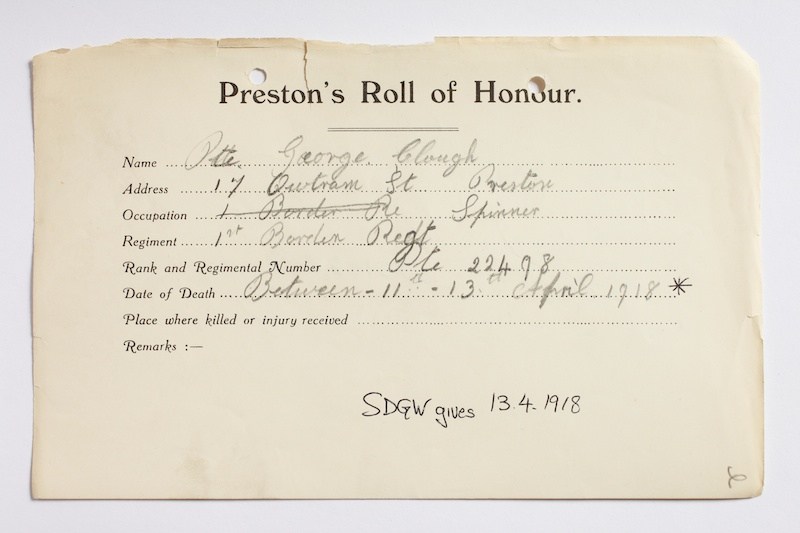 Preston's Roll of Honour.
Name Pte. George Clough
Address 17 Owtram St Preston
Occupation 1 Border Re Spinner
Regiment 1st Border Regt
Rank and Regimental Number Pte 22498
Date of Death Between - 11th - 13th April 1918 *
Place where killed or injury received
Remarks :—
SDGW gives 13.4.1918